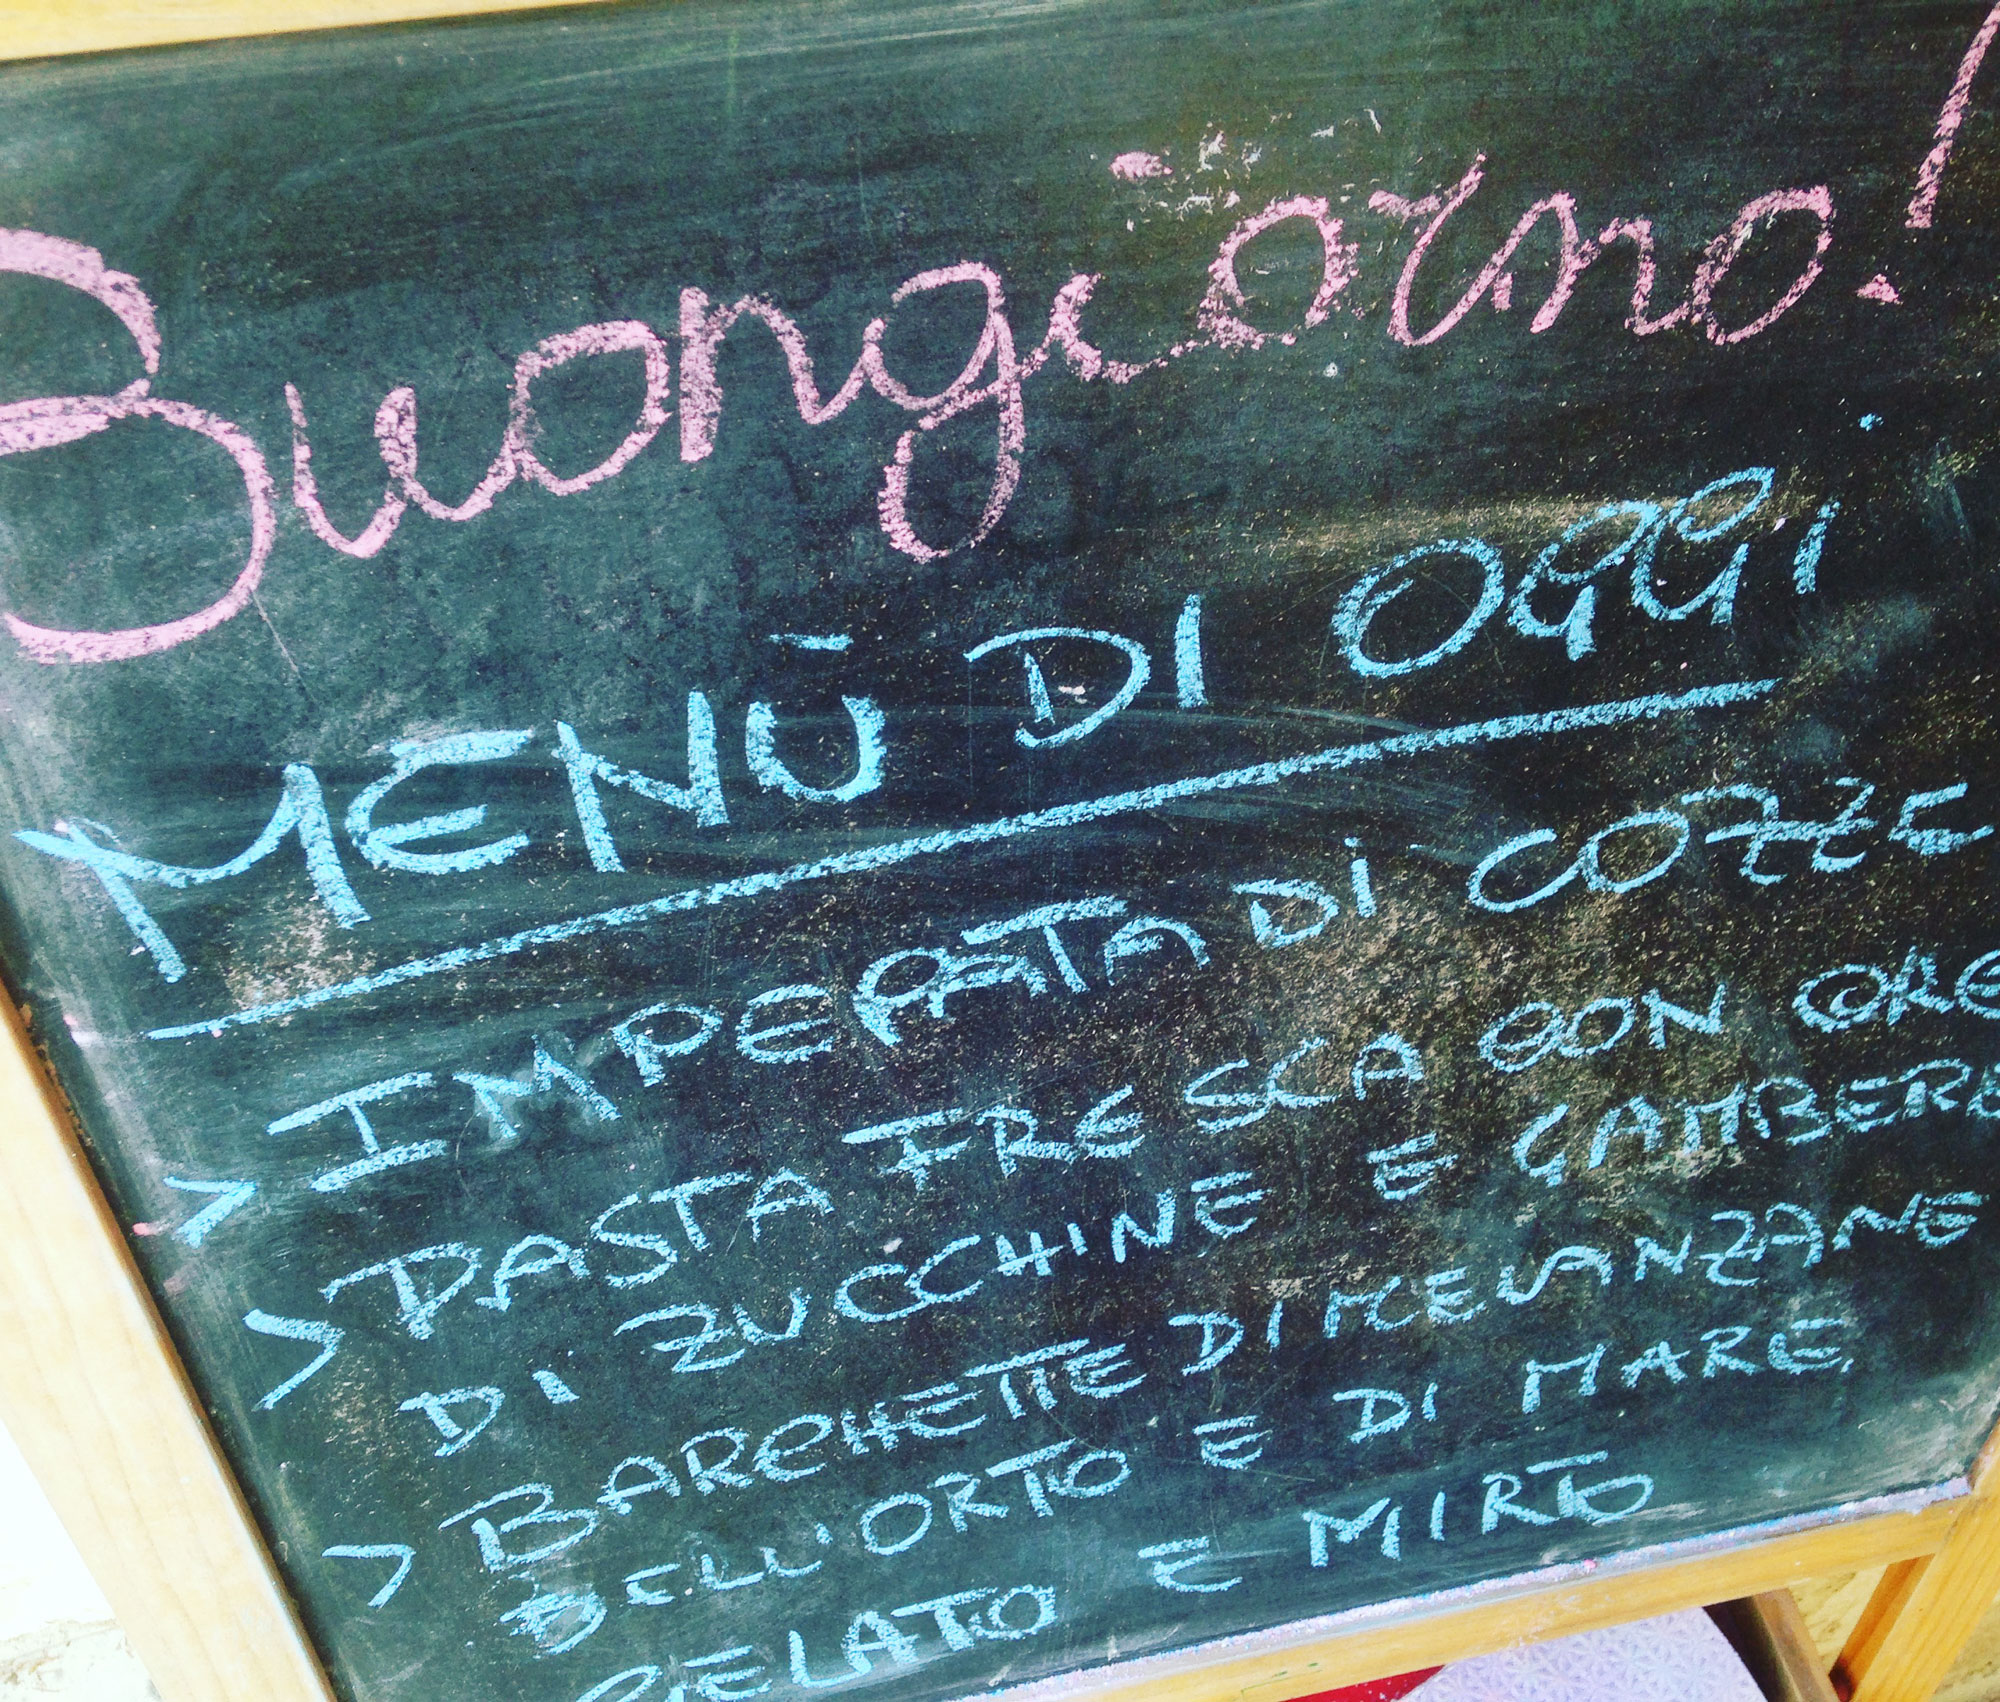 Buongiorno!
MENÙ DI OGGI
> IMPEPATA DI COZZE
> PASTA FRESCA CON CREM
DI ZUCCHINE E GAMBERE
> BARCHETTE DI MELANZANE
DELL'ORTO E DI MARE
GELATO E MIRTO